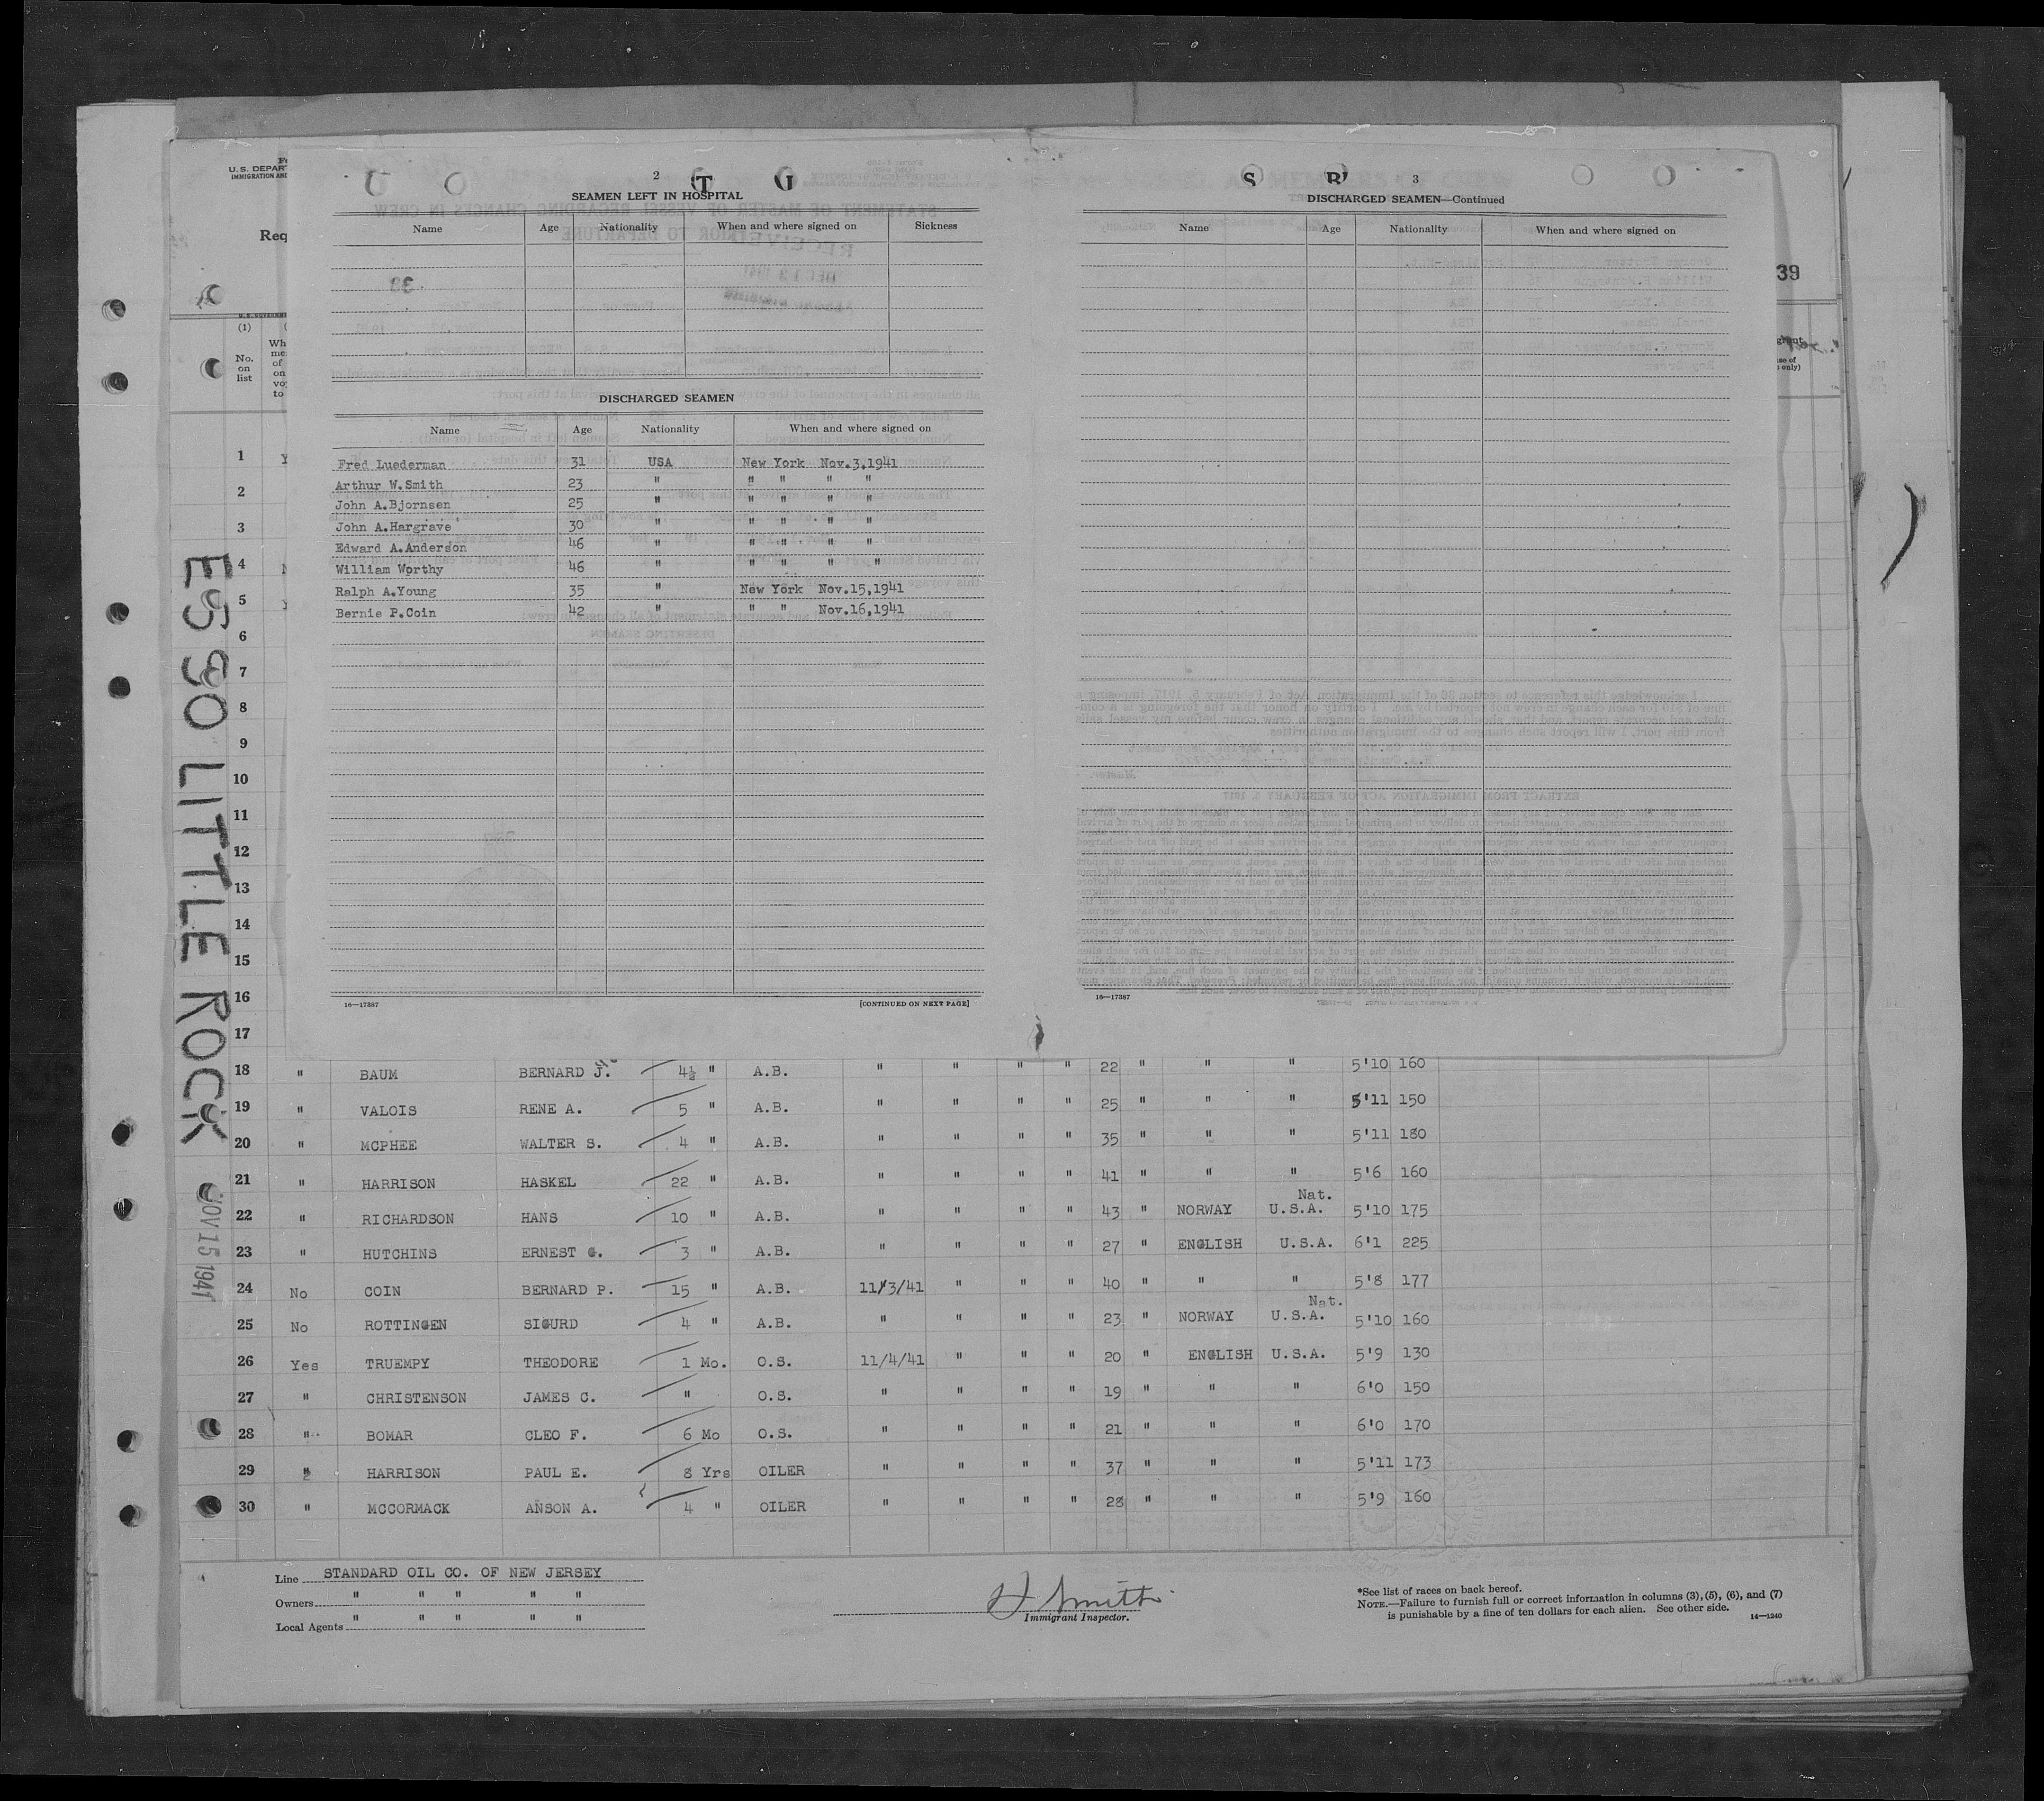 U.S. DEPART
IMMIGRATION AND
Req
39
2
SEAMEN LEFT IN HOSPITAL
Name Age Nationality When and where signed on Sickness
DISCHARGED SEAMEN
Name Age Nationality When and where signed on
Fred Luederman 31 USA New York Nov.3,1941
Arthur W.Smith 23 " " " " "
John A.Bjornsen 25 " " " " "
John A.Hargrave 30 " " " " "
Edward A.Anderson 46 " " " " "
William Worthy 46 " " " " "
Ralph A.Young 35 " New York Nov.15,1941
Bernie P.Coin 42 " " " Nov.16,1941
16—17387 [CONTINUED ON NEXT PAGE]
3
DISCHARGED SEAMEN—Continued
Name Age Nationality When and where signed on
16—17387
(1)
No. on list
1
2
3
4
5
6
7
8
9
10
11
12
13
14
15
16
17
18 " BAUM BERNARD J. 4½ " A.B. " " " " 22 " " " 5'10 160
19 " VALOIS RENE A. 5 " A.B. " " " " 25 " " " 5'11 150
20 " MCPHEE WALTER S. 4 " A.B. " " " " 35 " " " 5'11 180
21 " HARRISON HASKEL 22 " A.B. " " " " 41 " " " 5'6 160
Nat.
22 " RICHARDSON HANS 10 " A.B. " " " " 43 " NORWAY U.S.A. 5'10 175
23 " HUTCHINS ERNEST G. 3 " A.B. " " " " 27 " ENGLISH U.S.A. 6'1 225
24 No COIN BERNARD P. 15 " A.B. 11/3/41 " " " 40 " " " 5'8 177
Nat.
25 No ROTTINGEN SIGURD 4 " A.B. " " " " 23 " NORWAY U.S.A. 5'10 160
26 Yes TRUEMPY THEODORE 1 Mo. O.S. 11/4/41 " " " 20 " ENGLISH U.S.A. 5'9 130
27 " CHRISTENSON JAMES C. " O.S. " " " " 19 " " " 6'0 150
28 " BOMAR CLEO F. 6 Mo O.S. " " " " 21 " " " 6'0 170
29 " HARRISON PAUL E. 8 Yrs OILER " " " " 37 " " " 5'11 173
30 " MCCORMACK ANSON A. 4 " OILER " " " " 28 " " " 5'9 160
ESSO LITTLE ROCK
NOV 15 1941
Line STANDARD OIL CO. OF NEW JERSEY
Owners " " " " "
Local Agents " " " " "
Smith
Immigrant Inspector.
*See list of races on back hereof.
NOTE.—Failure to furnish full or correct information in columns (3), (5), (6), and (7)
is punishable by a fine of ten dollars for each alien. See other side.
14—1240